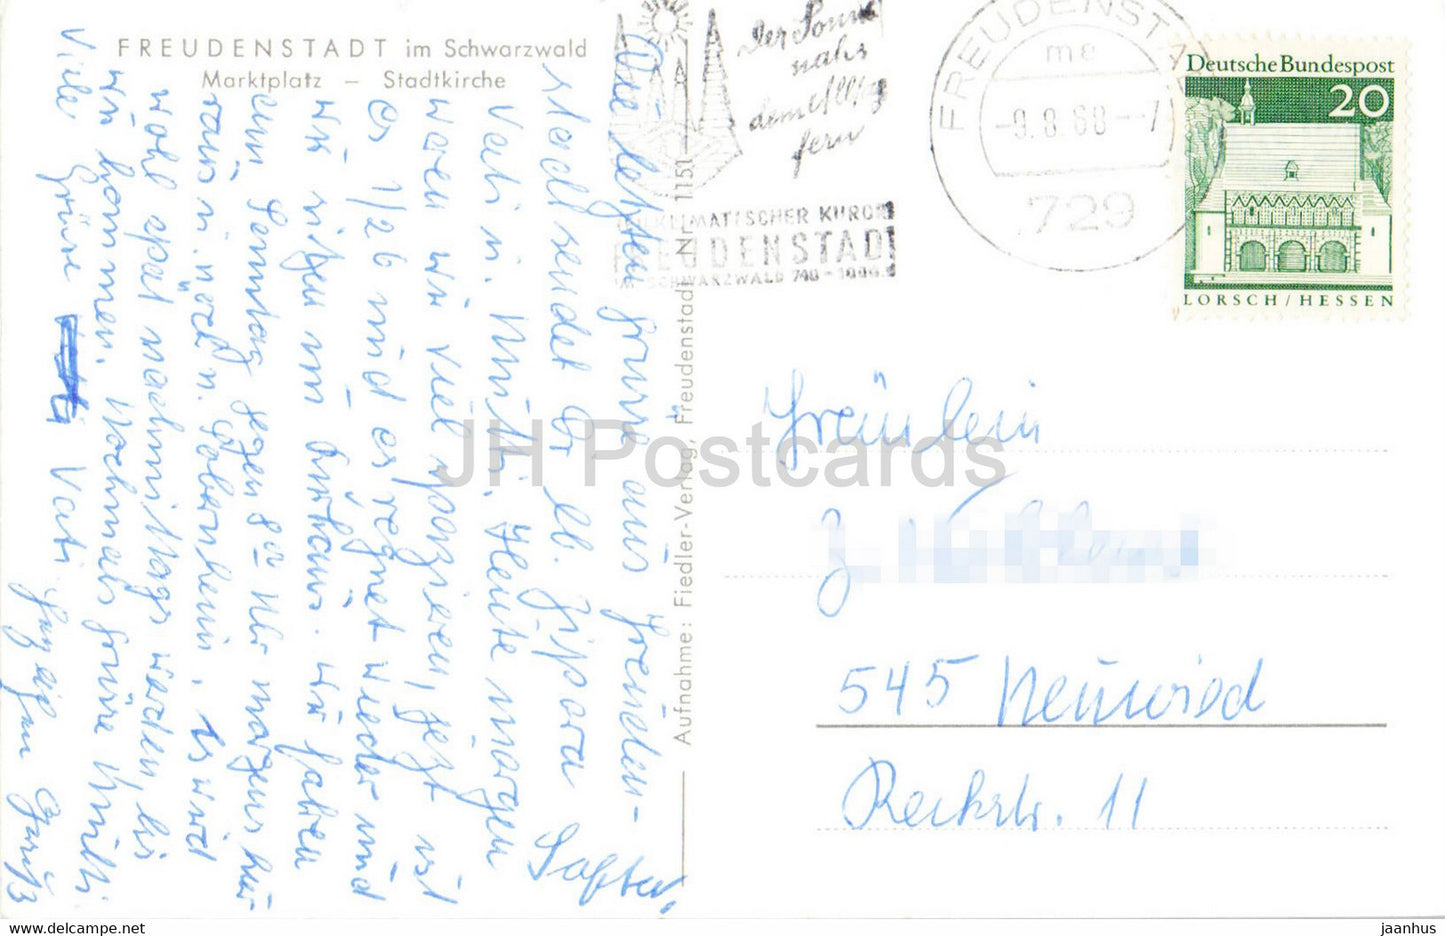 FREUDENSTADT im Schwarzwald
Marktplatz – Stadtkirche
Die letzten Grüße aus Freuden-
stadt sendet Dir lb. Zippora
Vati u. Mutti. Heute morgen
waren wir viel spazieren, jetzt ist
es 1/2 6 und es regnet wieder und
wir sitzen im Kurhaus. Wir fahren
am Sonntag gegen 8 Uhr morgens hier
raus u. nach. Es wird
wohl spät nachmittags werden, bis
wir kommen. Nochmals Grüße Mutti
Viele Grüße Vati
Gruß
Aufnahme: Fiedler-Verlag, Freudenstadt Nr. 1151
Der Sonne
nahe
dem Alltag
fern
KLIMATISCHER KURORT
FREUDENSTADT
SCHWARZWALD 740 - 1000
FREUDENSTADT
me
-9.8.68--7
729
Deutsche Bundespost
20
LORSCH/HESSEN
Fräulein
545 Neuwied
Reckstr. 11
JH Postcards
jaanhus